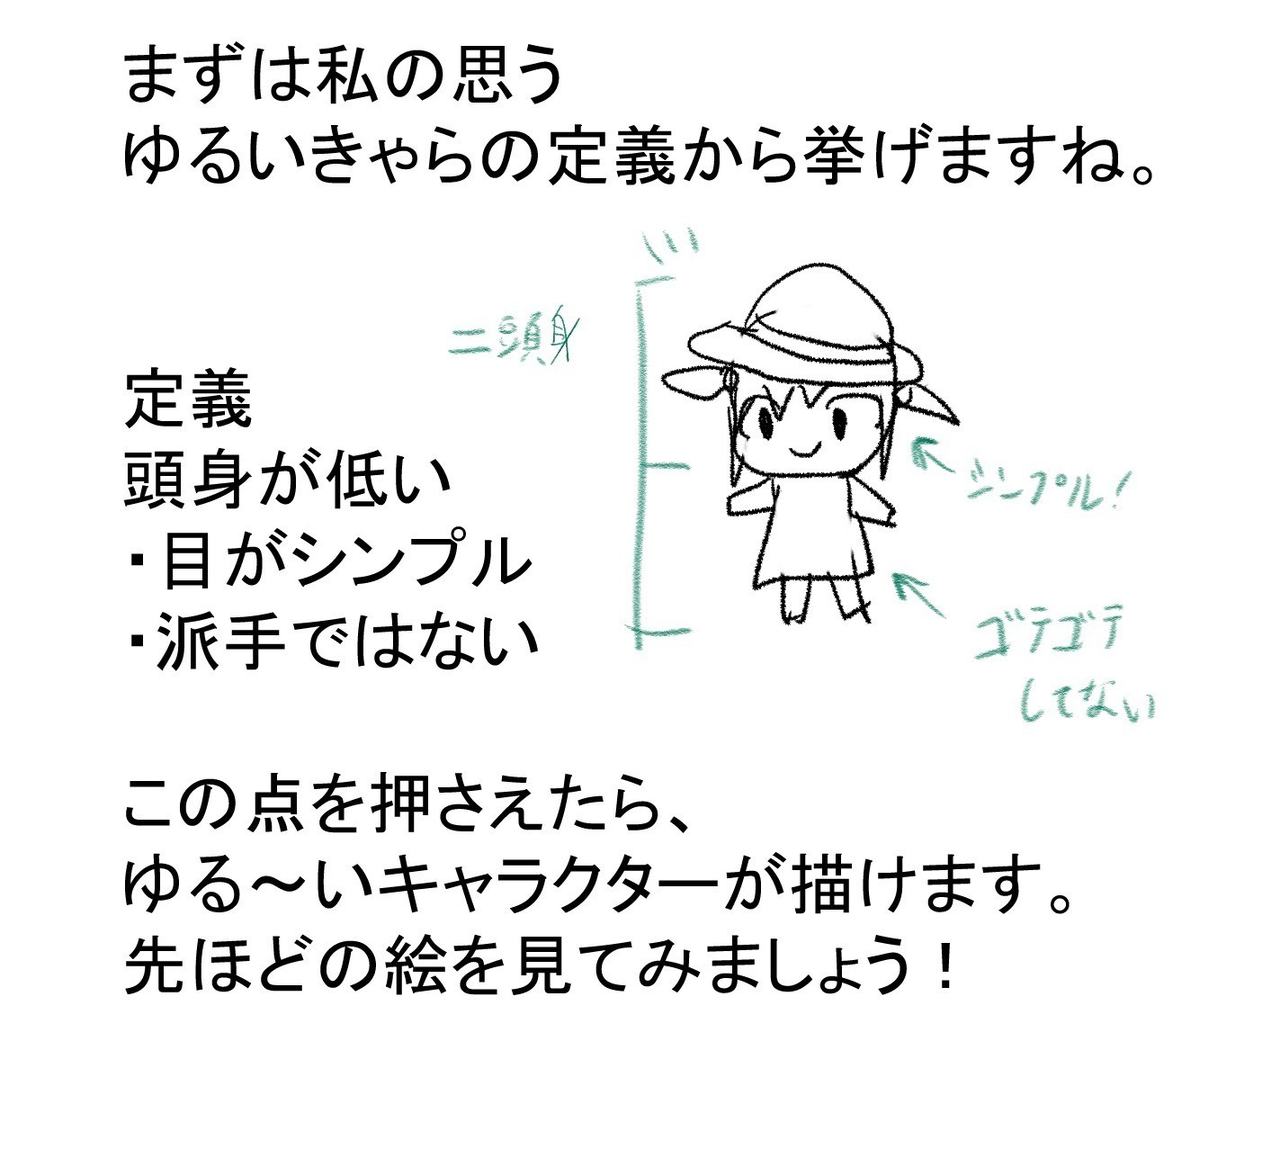 まずは私の思う
ゆるいきゃらの定義から挙げますね。
二頭身
定義
頭身が低い
・目がシンプル
・派手ではない
シンプル!
ゴテゴテ
してない
この点を押さえたら、
ゆる～いキャラクターが描けます。
先ほどの絵を見てみましょう！